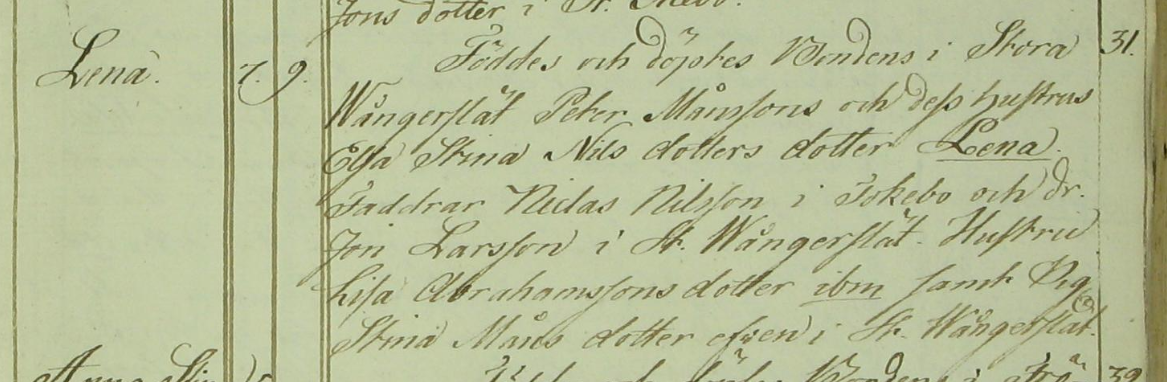 Jons dotter i St.
Lena. 7. 9. Föddes och döptes Bondens i Stora 31.
Wångerslät Peter Månssons och dess hustrus
Elsa Stina Nils dotters dotter Lena.
Faddrar Niclas Nilsson i Tokebo och dr.
Jon Larsson i St. Wångerslät. Hustru
Lisa Abrahamssons dotter ibm samt Pig
Stina Måns dotter efven i St. Wångerslät.
Anna Bondens i 39